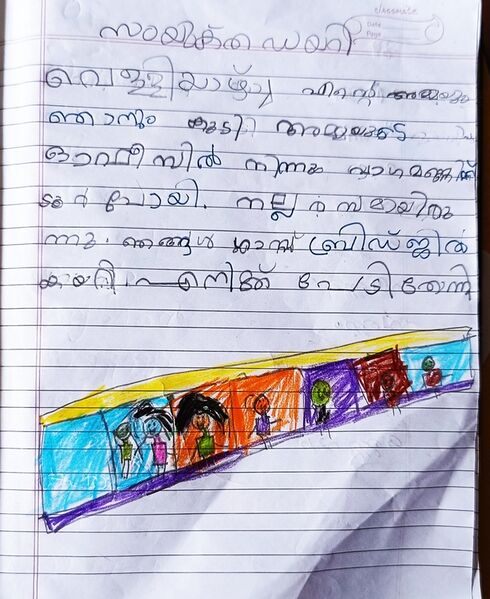 classmate
Date
Page
സംയുക്ത ഡയറി
വെള്ളിയാഴ്ച എന്റെ അമ്മയും
ഞാനും കൂടി അമ്മയുടെ
ഓഫീസിൽ നിന്നും വാഗമണ്ണിന്
ടൂർ പോയി. നല്ല രസമായിരു
ന്നു. ഞങ്ങൾ ഗ്ലാസ് ബ്രിഡ്ജിൽ
കയറി. എനിക്ക് പേടി തോന്നി